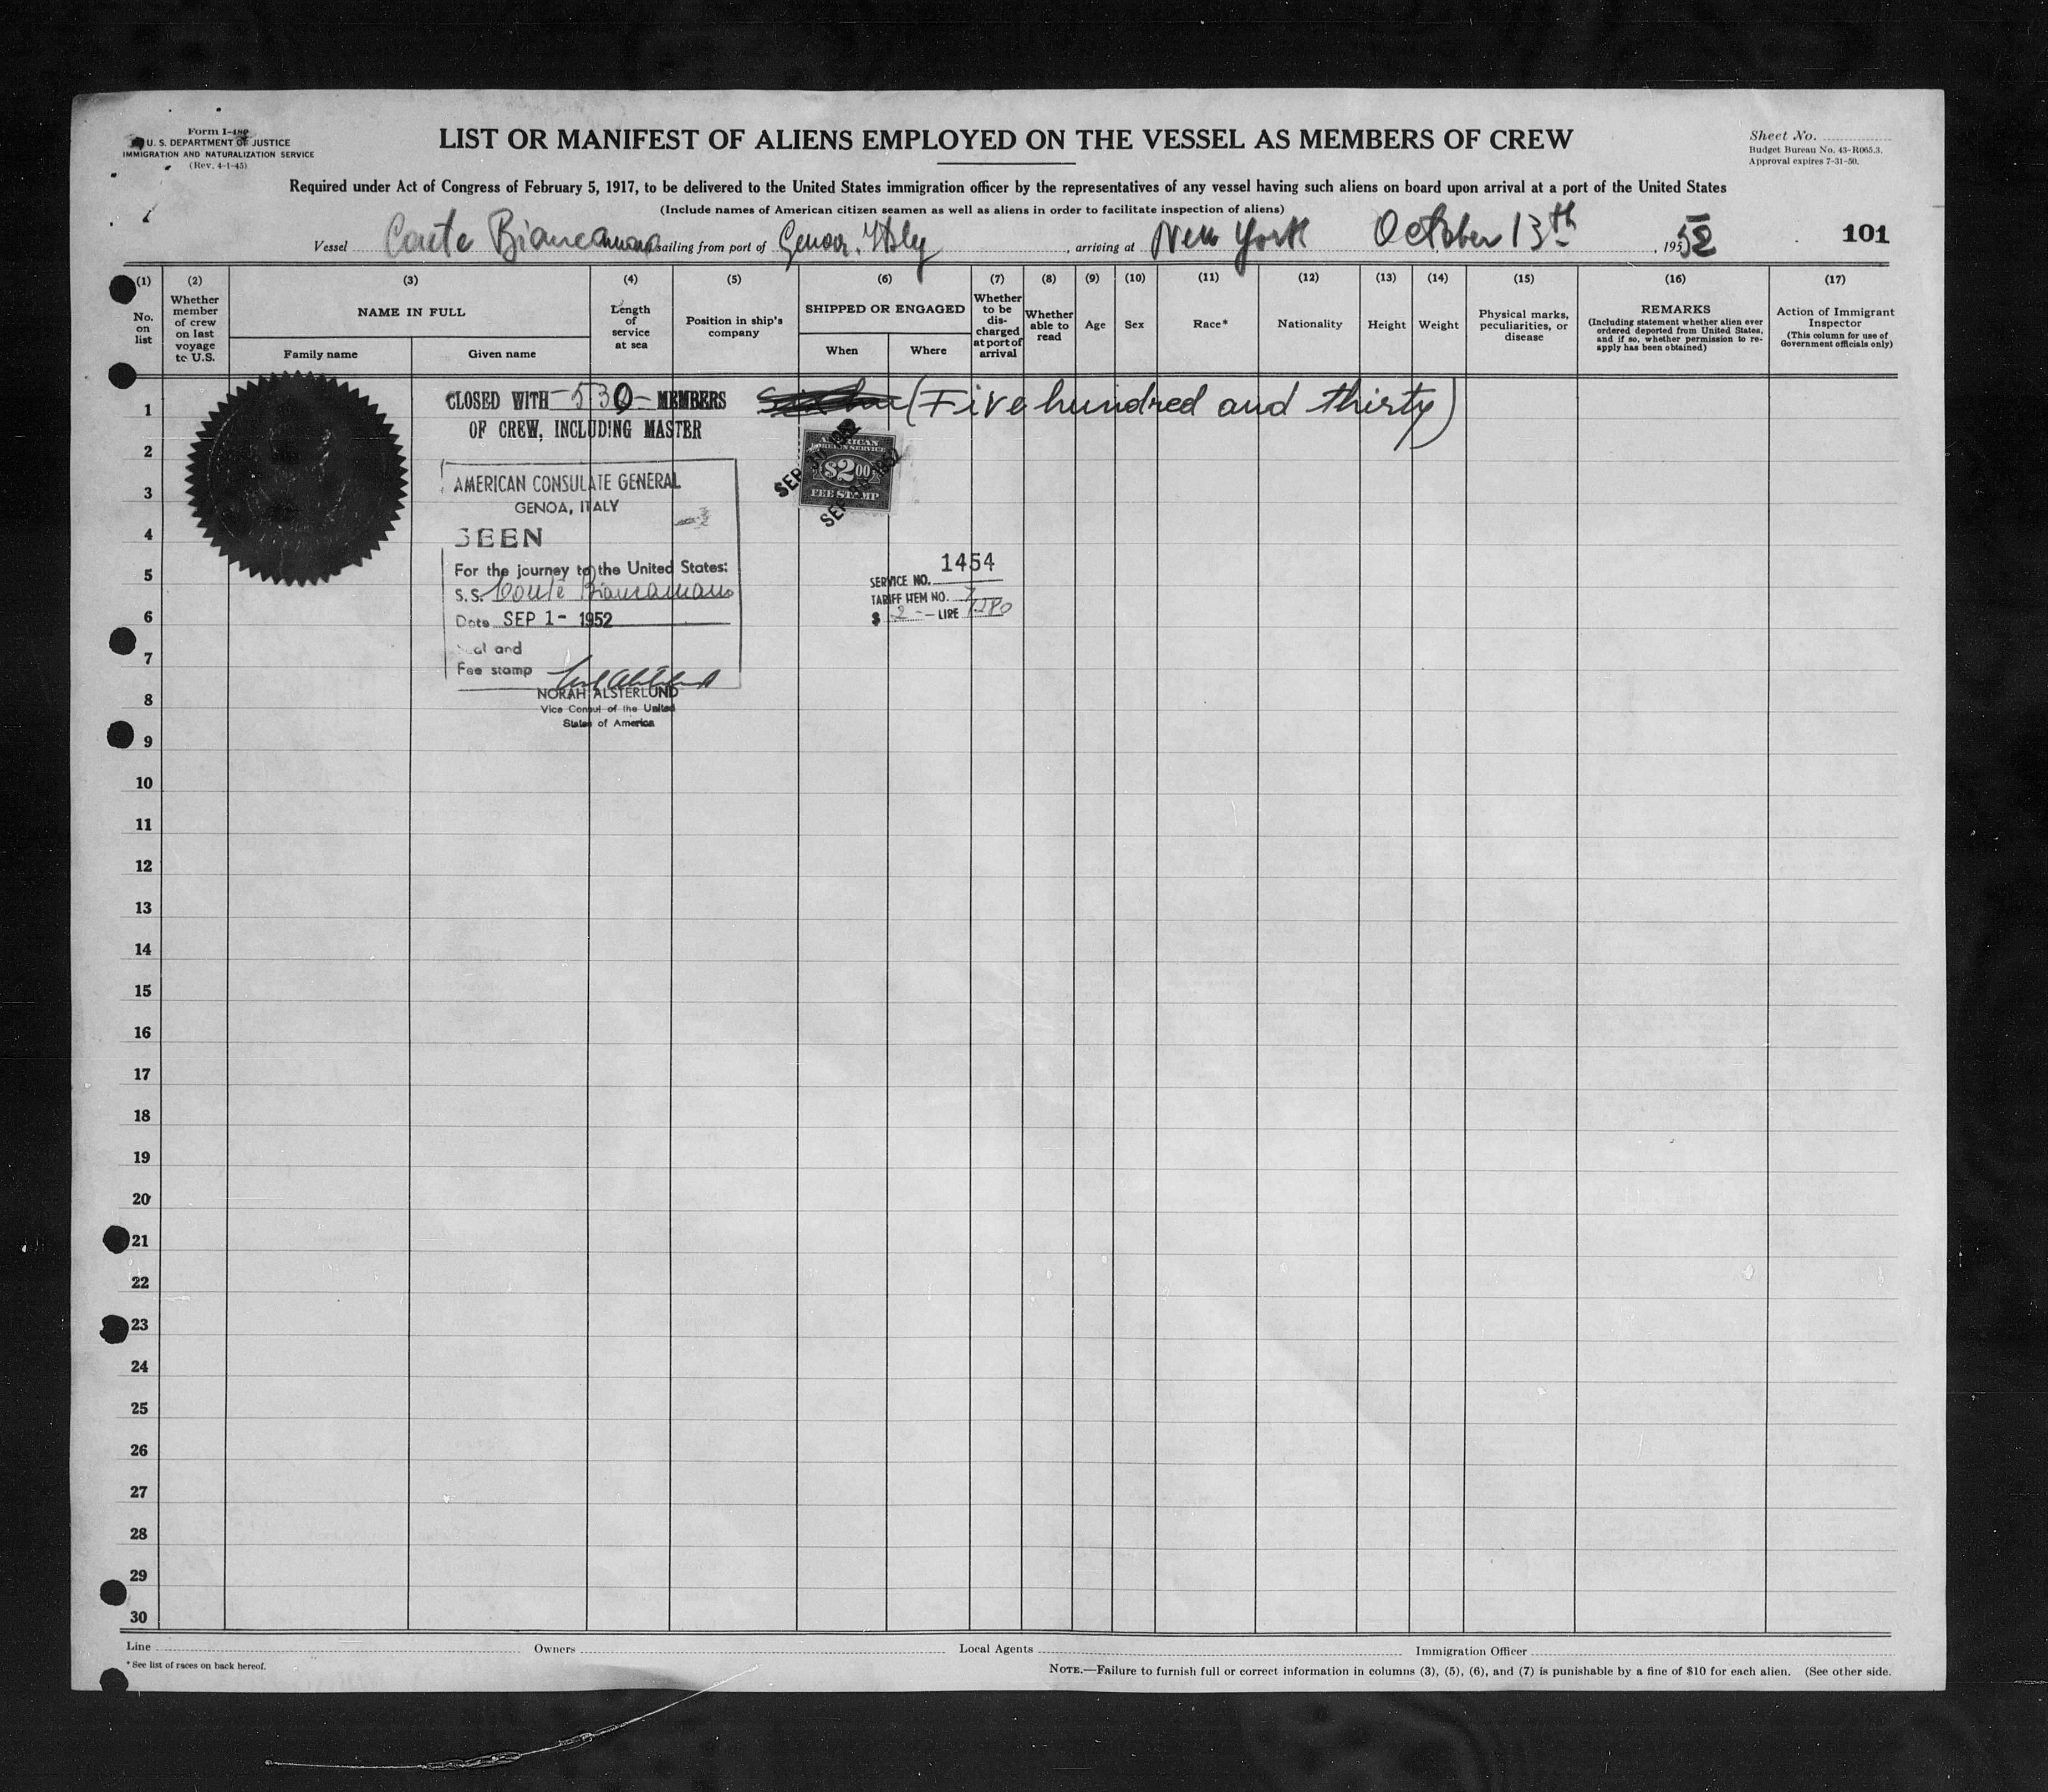 Form I-480
U. S. DEPARTMENT OF JUSTICE
IMMIGRATION AND NATURALIZATION SERVICE
(Rev. 4-1-45)
LIST OR MANIFEST OF ALIENS EMPLOYED ON THE VESSEL AS MEMBERS OF CREW
Sheet No.
Budget Bureau No. 43-R065.3.
Approval expires 7-31-50.
Required under Act of Congress of February 5, 1917, to be delivered to the United States immigration officer by the representatives of any vessel having such aliens on board upon arrival at a port of the United States
(Include names of American citizen seamen as well as aliens in order to facilitate inspection of aliens)
Vessel Conte Biancamano sailing from port of Genoa, Italy, arriving at New York October 13th, 1952
101
(1) No. on list
(2) Whether member of crew on last voyage to U.S.
(3) NAME IN FULL
Family name
Given name
(4) Length of service at sea
(5) Position in ship's company
(6) SHIPPED OR ENGAGED
When
Where
(7) Whether to be discharged at port of arrival
(8) Whether able to read
(9) Age
(10) Sex
(11) Race*
(12) Nationality
(13) Height
(14) Weight
(15) Physical marks, peculiarities, or disease
(16) REMARKS
(Including statement whether alien ever ordered deported from United States, and if so, whether permission to re-apply has been obtained)
(17) Action of Immigrant Inspector
(This column for use of Government officials only)
CLOSED WITH - 530 - MEMBERS
OF CREW, INCLUDING MASTER
(Five hundred and thirty)
AMERICAN CONSULATE GENERAL
GENOA, ITALY
SEEN
For the journey to the United States:
S.S. Conte Biancamano
Date SEP 1 - 1952
Seal and
Fee stamp
NORAH ALSTERLUND
Vice Consul of the United
States of America
AMERICAN
FOREIGN SERVICE
$2.00
FEE STAMP
SERVICE NO. 1454
TARIFF ITEM NO. 7
$ 2 - LIRE 1280
1
2
3
4
5
6
7
8
9
10
11
12
13
14
15
16
17
18
19
20
21
22
23
24
25
26
27
28
29
30
Line
Owners
Local Agents
Immigration Officer
* See list of races on back hereof.
NOTE.—Failure to furnish full or correct information in columns (3), (5), (6), and (7) is punishable by a fine of $10 for each alien. (See other side.